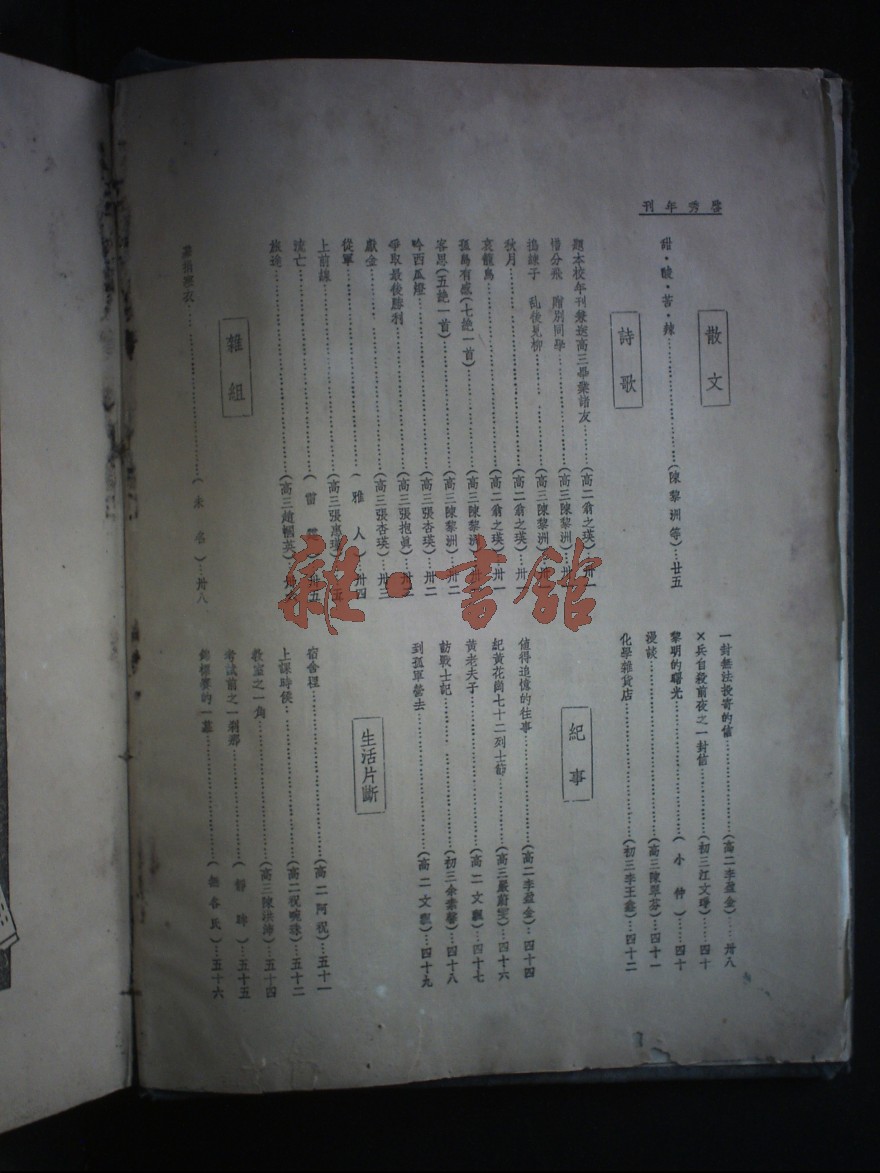 啓秀年刊
散文
甜·酸·苦·辣……(陳黎洲等)…廿五
詩歌
題本校年刊兼送高三畢業諸友……(高二翁之瑛)…卅一
惜分飛 贈別同學……(高三陳黎洲)…卅一
搗練子 乱後見柳……(高三陳黎洲)…卅一
秋月……(高二翁之瑛)…卅一
哀龍鳥……(高二翁之瑛)…卅一
孤鳥有感(七絶一首)……(高三陳黎洲)…卅二
客思(五絶一首)……(高三陳黎洲)…卅二
吟西瓜燈……(高三張杏瑛)…卅二
爭取最後勝利……(高三張抱眞)…卅三
獻金……(高三張杏瑛)…卅三
從軍……(雅人)…卅四
上前線……(高三張惠瑛)…卅五
流亡……(雷)…卅五
旅途……(高三趙幗英)…卅六
雜組
(未名)…卅八
一封無法投寄的信……(高二李盈金)…卅八
×兵自殺前夜之一封信……(初三江文琤)…四十
黎明的曙光……(小仲)…四十
漫談……(高三陳翠芬)…四十一
化學雜貨店……(初三李王鑫)…四十二
紀事
値得追憶的往事……(高二李盈金)…四十四
紀黃花崗七十二列士節……(高三嚴蔚雯)…四十六
黃老夫子……(高二文覣)…四十七
訪戰士記……(初三余素馨)…四十八
到孤軍營去……(高二文覣)…四十九
生活片斷
宿舍裡……(高二阿祝)…五十一
上課時候……(高二祝婉珠)…五十二
教室之一角……(高三陳洪沛)…五十四
考試前之一刹那……(靜瑋)…五十五
錦標賽的一幕……(無咎氏)…五十六
雜·書舘